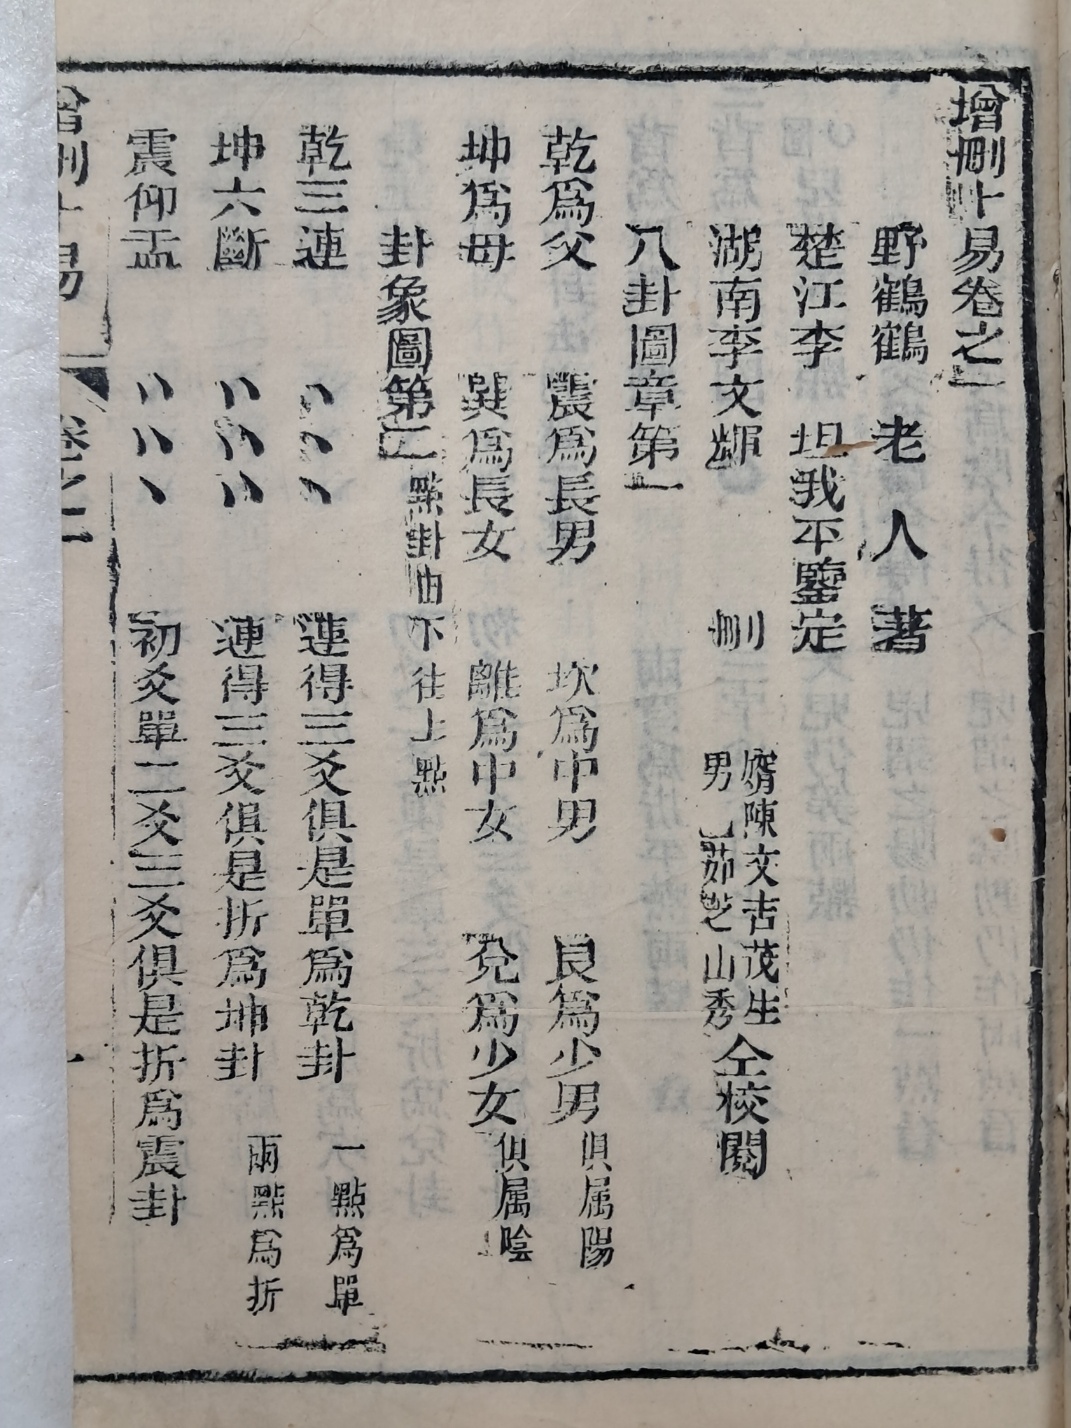 增刪卜易卷之一
野鶴鶴老人著
楚江李坦我平鑒定
湖南李文輝刪
婿陳文吉茂生
男 茹芝山秀
仝校閱
八卦圖章第一
乾為父 震為長男 坎為中男 艮為少男 俱属陽
坤為母 巽為長女 離為中女 兌為少女 俱属陰
卦象圖第二 點卦由下往上點
乾三連 、、、 連得三爻俱是單為乾卦 一點為單
坤六斷 連得三爻俱是折為坤卦 兩點為折
震仰盂 初爻單二爻三爻俱是折為震卦
增刪卜易 卷之一 一